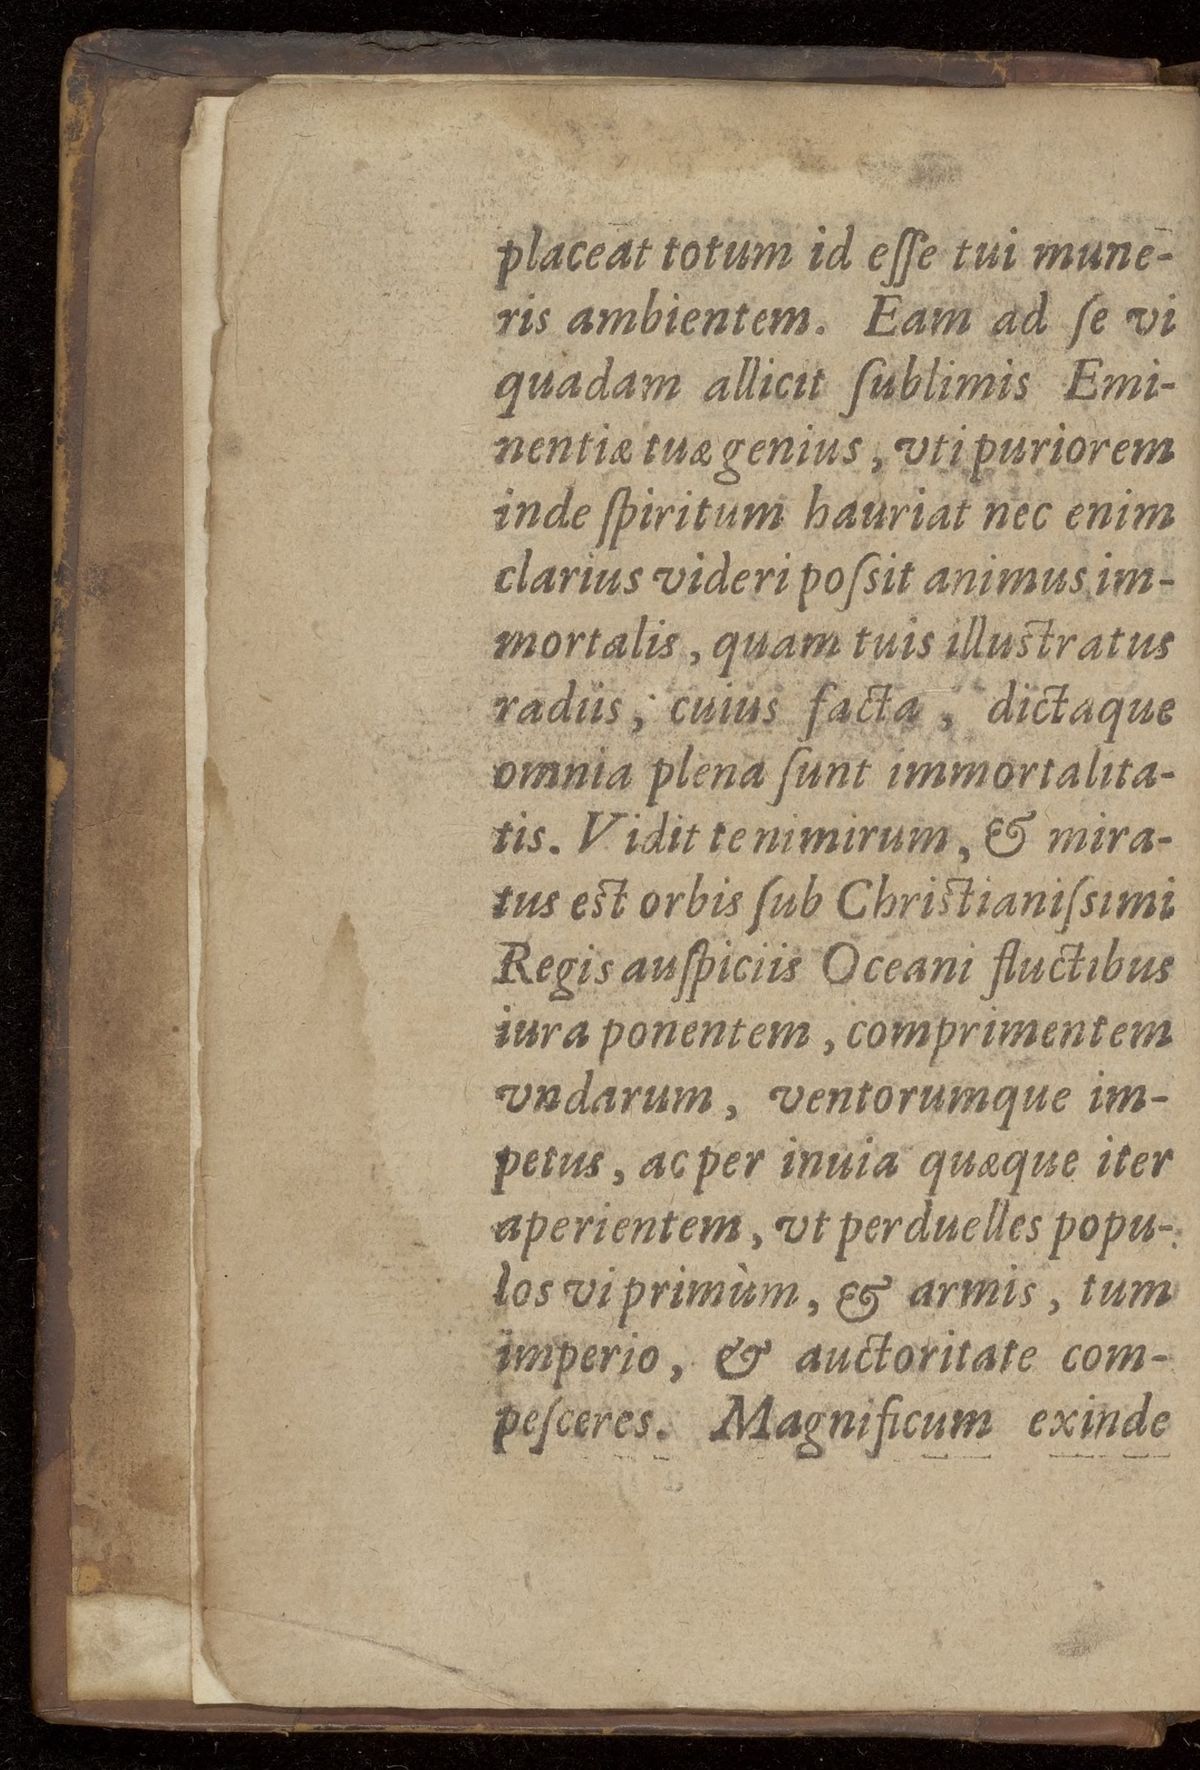 placeat totum id eſſe tui mune-
ris ambientem. Eam ad ſe vi
quadam allicit ſublimis Emi-
nentiæ tuæ genius, vti puriorem
inde ſpiritum hauriat nec enim
clarius videri poſsit animus im-
mortalis, quam tuis illuſtratus
radiis, cuius facta, dictaque
omnia plena ſunt immortalita-
tis. Vidit te nimirum, & mira-
tus eſt orbis ſub Chriſtianiſsimi
Regis auſpiciis Oceani fluctibus
iura ponentem, comprimentem
vndarum, ventorumque im-
petus, ac per inuia quæque iter
aperientem, vt perduelles popu-
los vi primùm, & armis, tum
imperio, & auctoritate com-
peſceres. Magnificum exinde